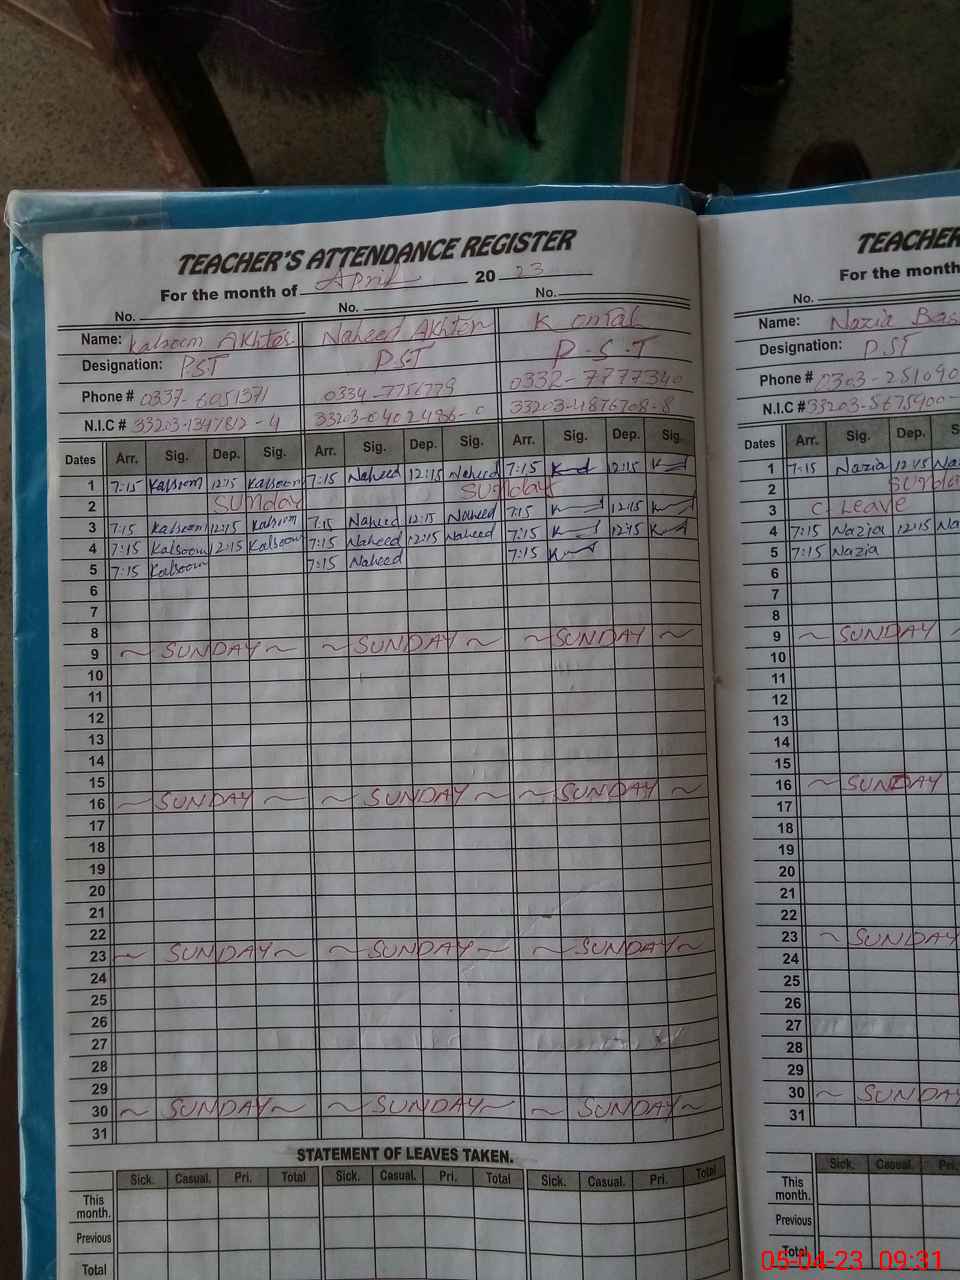 TEACHER'S ATTENDANCE REGISTER
For the month of April 20 23
No. No. No.
Name: Kalsoom Akhter Naheed Akhter Komal
Designation: P.S.T P.S.T P.S.T
Phone # 0337-6051371 0334-7756779 0332-7777340
N.I.C # 33203-0402486-0 33203-4876708-8
Dates Arr. Sig. Dep. Sig. Arr. Sig. Dep. Sig. Arr. Sig. Dep. Sig.
1 7:15 Kalsoom 12:15 Kalsoom 7:15 Naheed 12:15 Naheed 7:15 12:15
2 Sunday Sunday
3 7:15 Kalsoom 12:15 Kalsoom 7:15 Naheed 12:15 Naheed 7:15 12:15
4 7:15 Kalsoom 12:15 Kalsoom 7:15 Naheed 12:15 Naheed 7:15 12:15
5 7:15 Kalsoom 7:15 Naheed 7:15
6
7
8
9 ~ SUNDAY ~ ~ SUNDAY ~ ~ SUNDAY ~
10
11
12
13
14
15
16 ~ SUNDAY ~ ~ SUNDAY ~ ~ SUNDAY ~
17
18
19
20
21
22
23 ~ SUNDAY ~ ~ SUNDAY ~ ~ SUNDAY ~
24
25
26
27
28
29
30 ~ SUNDAY ~ ~ SUNDAY ~ ~ SUNDAY ~
31
STATEMENT OF LEAVES TAKEN.
Sick. Casual. Pri. Total Sick. Casual. Pri. Total Sick. Casual. Pri. Total
This month.
Previous
Total
TEACHER
For the month
No.
Name: Nazia Bas
Designation: P.ST
Phone # 0303-251090
N.I.C # 33203-5675900-
Dates Arr. Sig. Dep. S
1 7:15 Nazia 12:15 Na
2 Sunda
3 C. Leave
4 7:15 Nazia 12:15 Na
5 7:15 Nazia
6
7
8
9 ~ SUNDAY
10
11
12
13
14
15
16 ~ SUNDAY
17
18
19
20
21
22
23 ~ SUNDAY
24
25
26
27
28
29
30 ~ SUNDAY
31
Sick. Casual. Pri.
This month.
Previous
Total
05-04-23 09:31